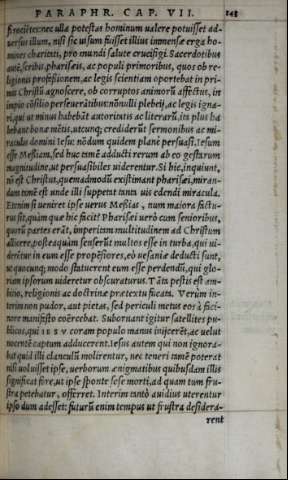 PARAPHR. CAP. VII.
fi noceretur: nec ulla potestas hominum ualere potuisset ad-
uersus illum, nisi sic uisum fuisset illius immensæ erga ho-
mines charitati, pro mundi salute crucifigi. Sacerdotibus
aũt, scribis, pharisæis, ac populi primoribus, quos ob re-
ligionis professionem, ac legis scientiam oportebat in pri-
mis Christũ agnoscere, ob corruptos animorũ affectus, in
impio cõsilio perseuerãtibus: nõnulli plebeij, ac legis igna-
ri, qui ut minus habebãt autoritatis ac literarũ, ita plus ha
bebant bonæ mẽtis, utcunq; crediderũt sermonibus ac mi-
raculis domini Iesu: nõdum quidem planè persuasi, Iesum
esse Messiam, sed huc tamẽ adducti rerum ab eo gestarum
magnitudine, ut persuasibiles uiderentur. Si hic, inquiunt,
nõ est Christus, quemadmodũ existimant pharisæi, miran-
dum tamẽ est unde illi suppetat tanta uis edendi miracula.
Etenim si ueniret ipse uerus Messias, num maiora factu-
rus sit, quàm quæ hic facit? Pharisæi uerò cum senioribus,
quorũ partes erãt, imperitam multitudinem ad Christum
allicere, posteaquàm senserũt multos esse in turba, qui ui-
derẽtur in eum esse propẽsiores, eò uesaniæ deducti sunt,
ut quocunq; modo statuerent eum esse perdendũ, qui glo-
riam ipsorum uideretur obscuraturus. Tãta pestis est am-
bitio, religionis ac doctrinæ prætextu fucata. Verùm in-
terim non pudor, aut pietas, sed periculi metus eos à faci-
nore manifesto coërcebat. Subornant igitur satellites pu-
blicos, qui IESV coram populo manus inijcerẽt, ac uelut
nocentẽ captum adducerent. Iesus autem qui non ignora-
bat quid illi clanculũ molirentur, nec teneri tamẽ poterat
nisi uoluisset ipse, uerborum ænigmatibus quibusdam illis
significat fore, ut ipse sponte sese morti, ad quam tum fru-
stra petebatur, offerret. Interim tantò auidius uterentur
ipso dum adesset: futurũ enim tempus ut frustra desidera-
rent